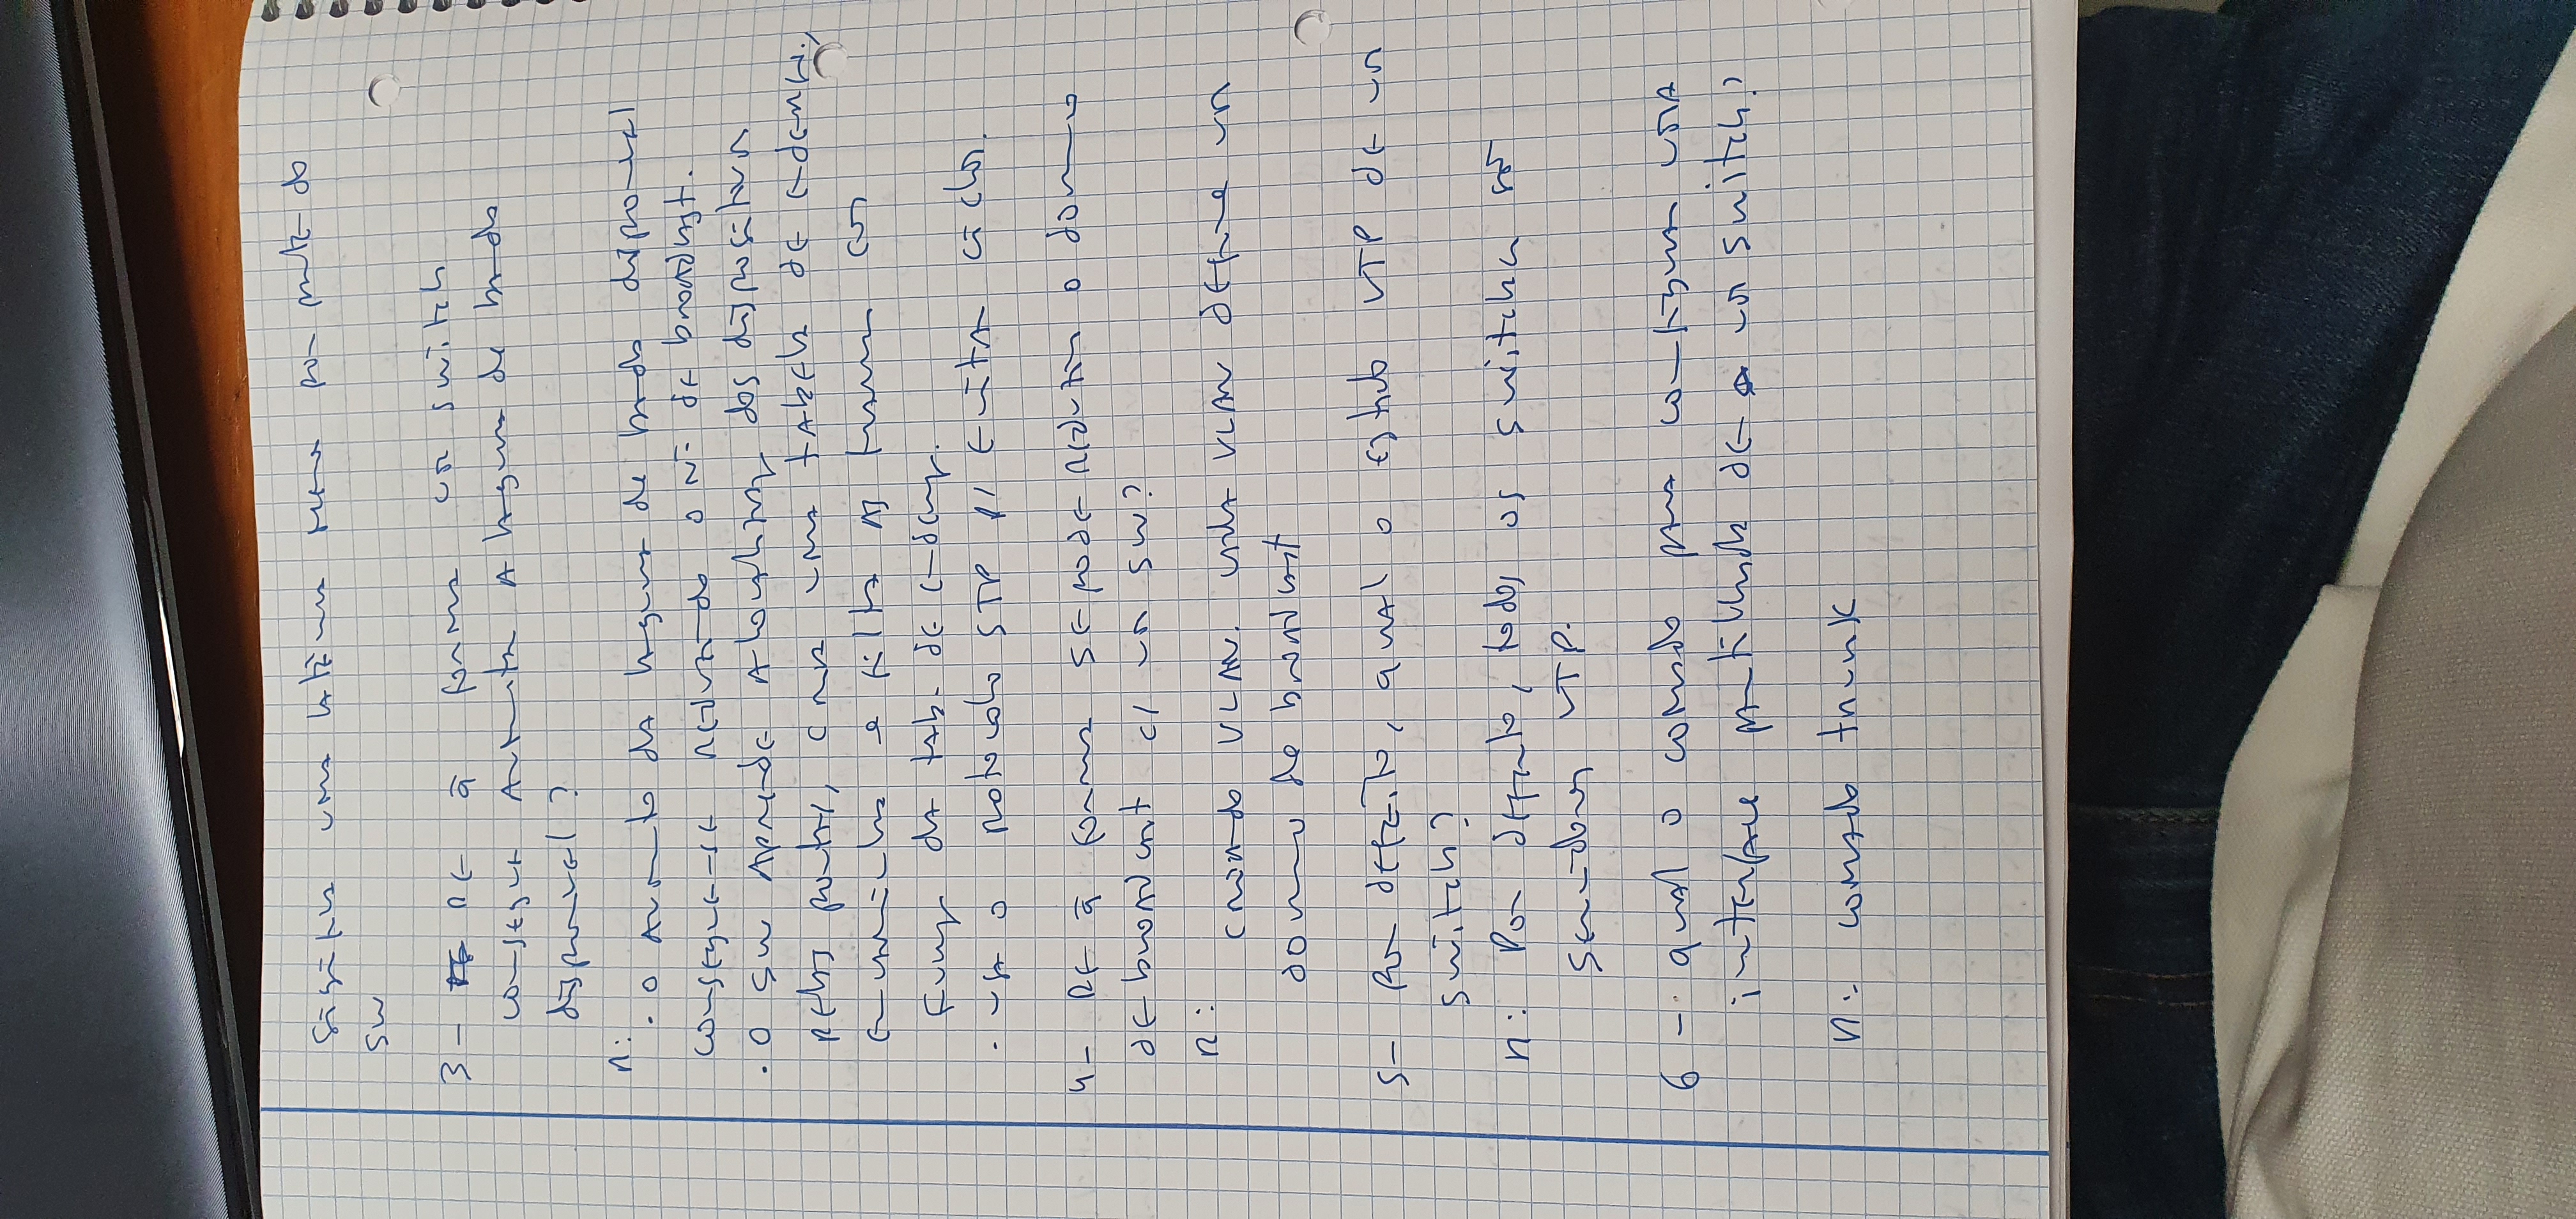 significa uma latência menor por parte do
sw
3 - De q̄ forma um switch
consegue aumentar a largura de banda
disponível?
R:
. O aumento da largura de banda disponível
consegue-se reduzindo o nº de broadcast.
. O sw aprende a localização dos dispositivos
pelas portas, cria uma tabela de endereç.,
encaminha e filtra as tramas com
função da tab. de endereç.
. usa o protocolo STP p/ evitar ciclos.
4 - De q̄ forma se pode reduzir o domínio
de broadcast c/ um sw?
R:
criando VLAN. cada VLAN define um
domínio de broadcast
5 - Por defeito, qual o estado VTP de um
switch?
R: Por defeito, todos os switches são
servidores VTP.
6 - qual o comando para configurar uma
interface partilhada de um switch?
R: comando trunk